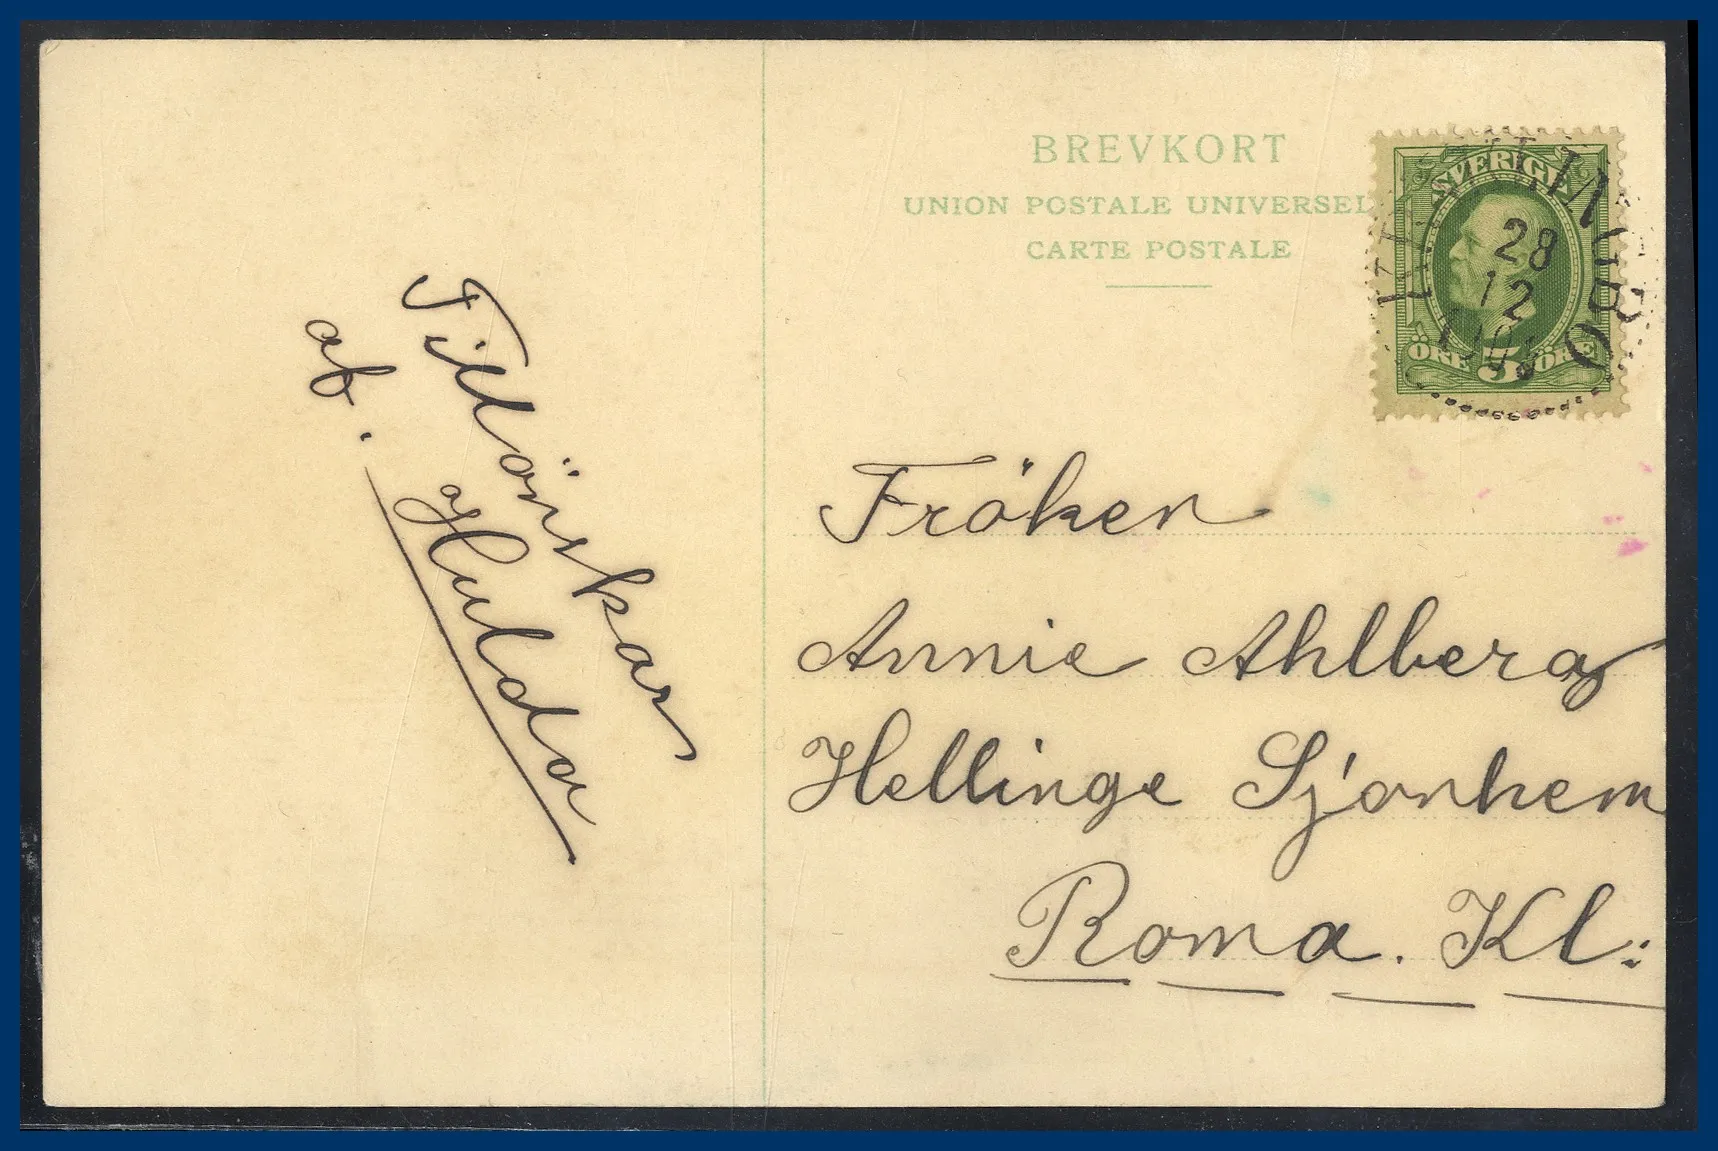 Tillönskas
af.
Hulda
BREVKORT
UNION POSTALE UNIVERSEL
CARTE POSTALE
SVERIGE
28
12
ÖRE 5 ÖRE
Fröken
Annie Ahlberg
Hellinge Sjonhem
Roma. Kl: